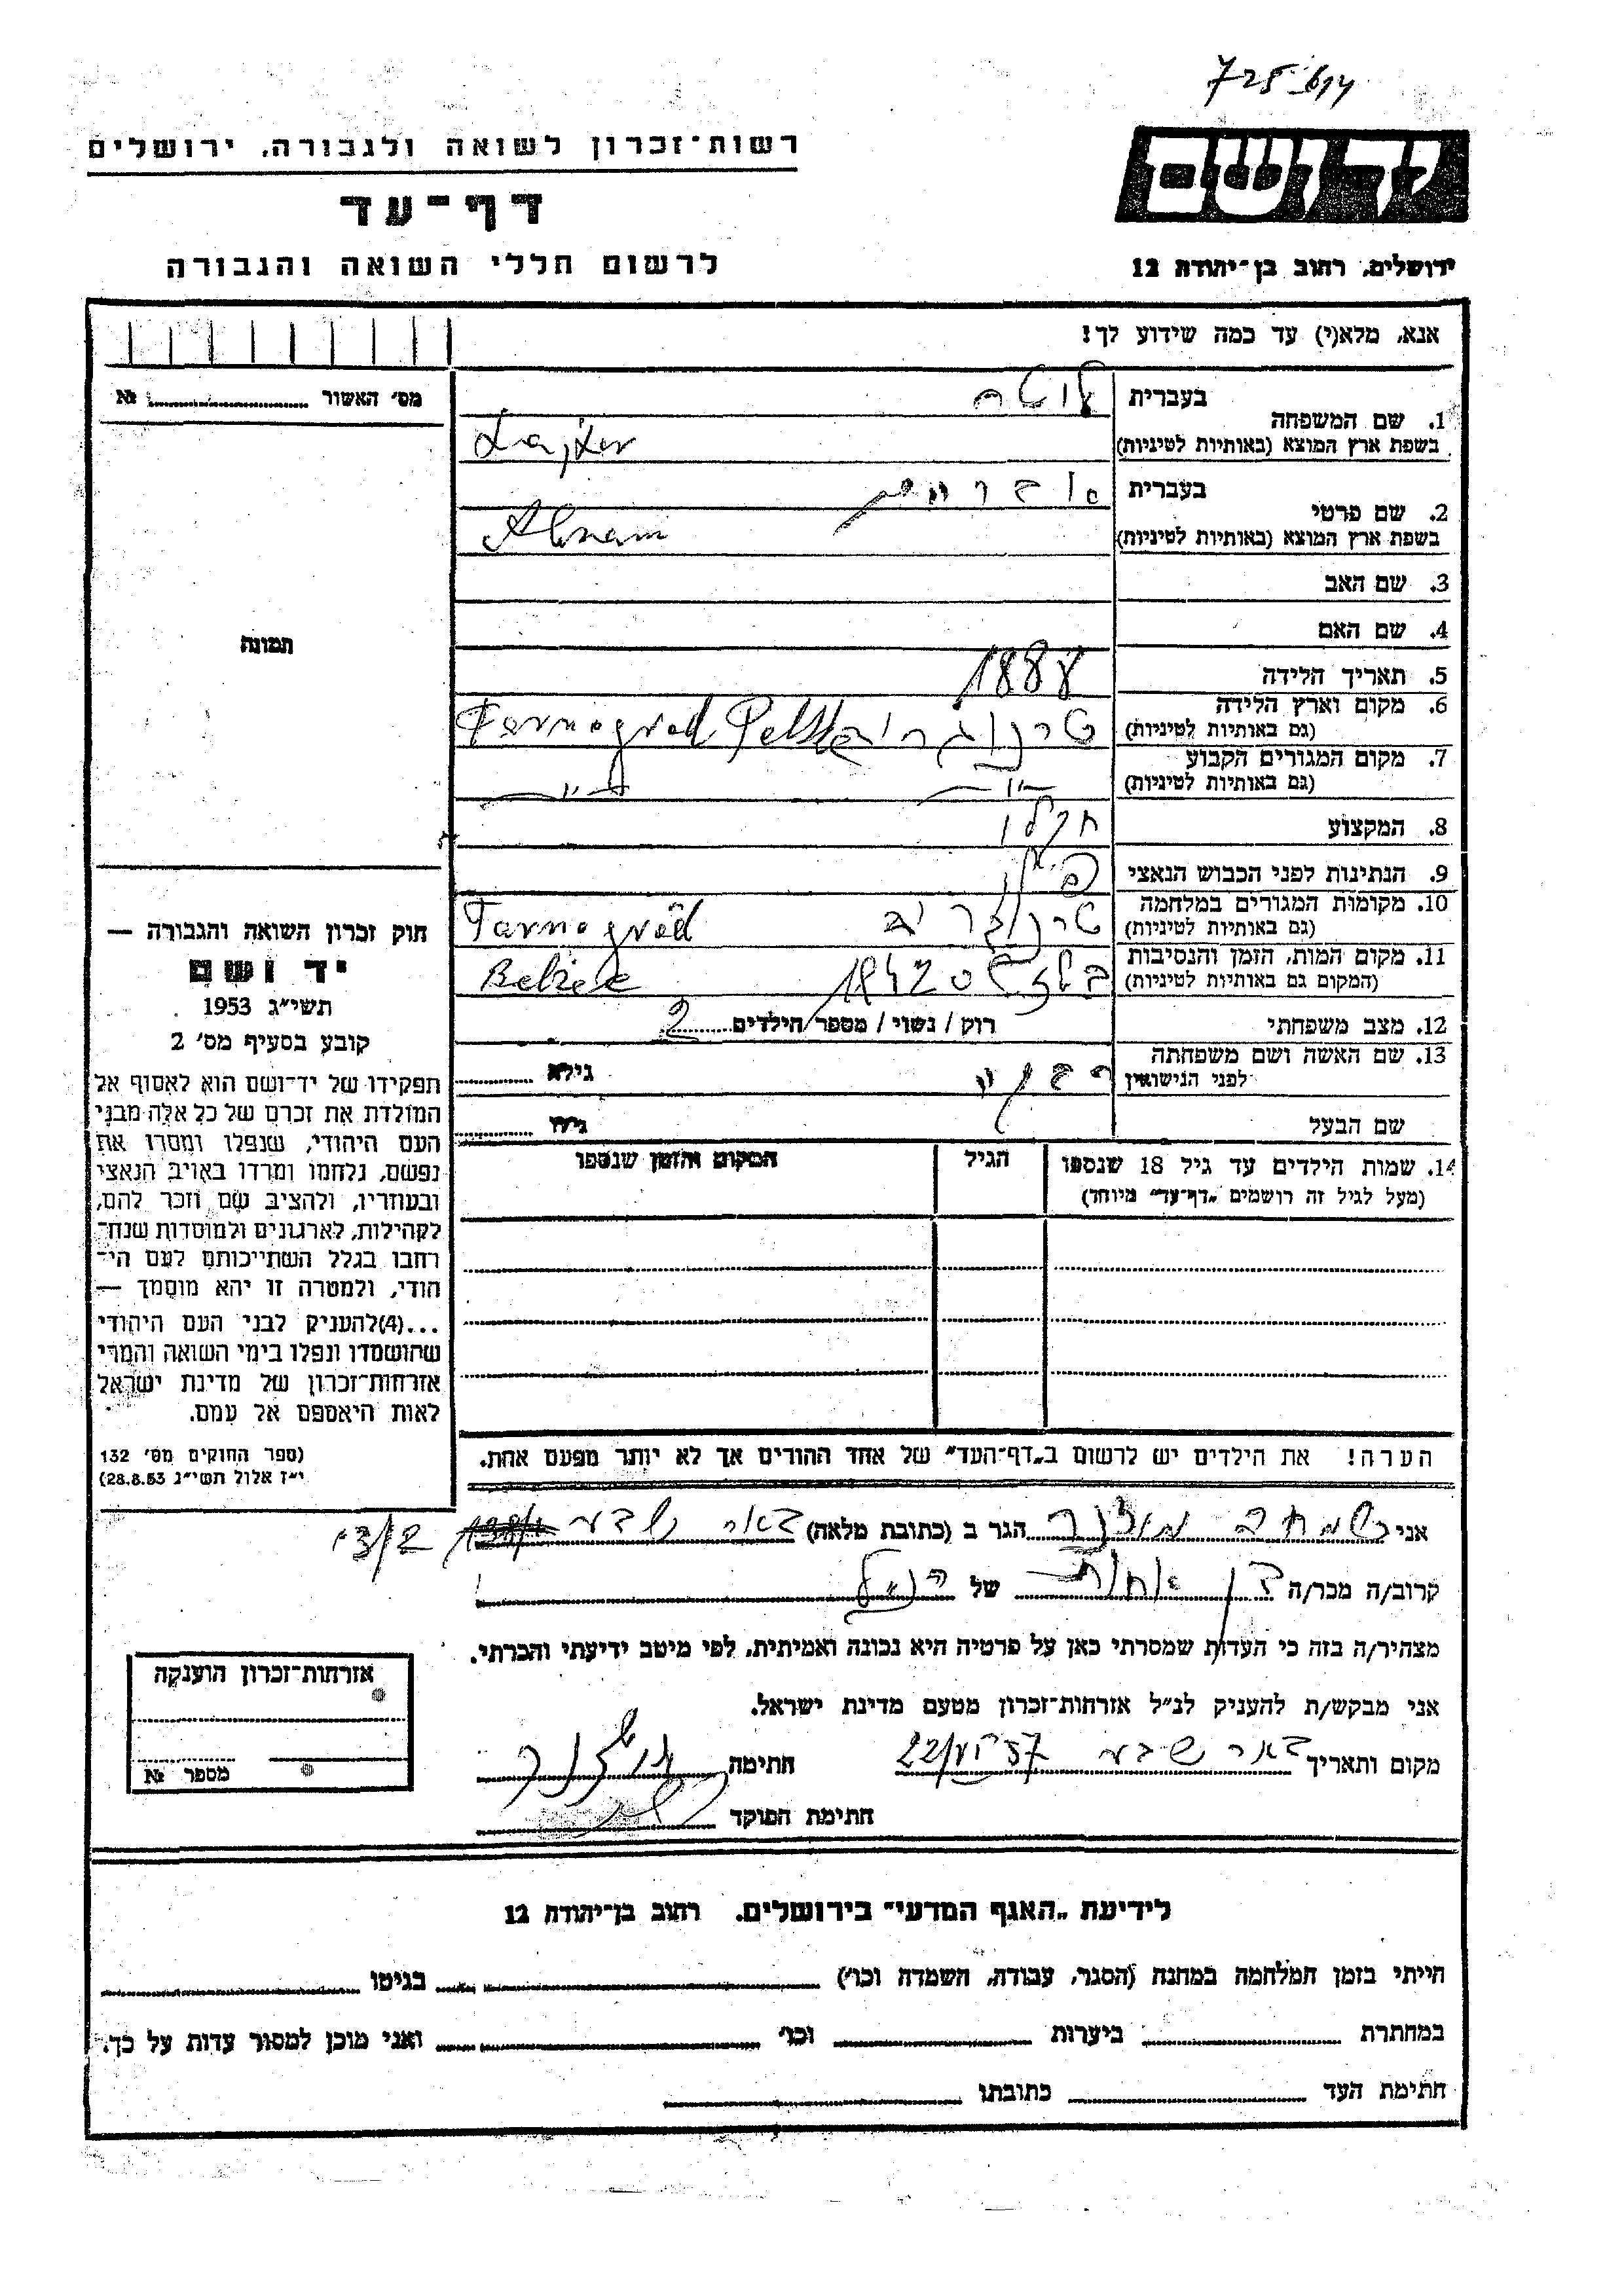 רשות־זכרון לשואה ולגבורה, ירושלים
דף־עד
לרשום חללי השואה והגבורה
יד ושם
ירושלים, רחוב בן־יהודה 12
אנא, מלא(י) עד כמה שידוע לך!
מס׳ האשור № 
בעברית
1. שם המשפחה
בשפת ארץ המוצא (באותיות לטיניות)
בעברית אברהם
2. שם פרטי
בשפת ארץ המוצא (באותיות לטיניות) Abram
3. שם האב
4. שם האם
תמונה
5. תאריך הלידה 1888
6. מקום וארץ הלידה
(גם באותיות לטיניות) טרנוגרוד Tarnogrod Polska
7. מקום המגורים הקבוע
(גם באותיות לטיניות) -"- -"-
8. המקצוע חקלאי
9. הנתינות לפני הכבוש הנאצי
10. מקומות המגורים במלחמה
(גם באותיות לטיניות) Tarnogród
11. מקום המות, הזמן והנסיבות
(המקום גם באותיות לטיניות) 1942
12. מצב משפחתי רוק / נשוי / מספר הילדים 2
13. שם האשה ושם משפחתה
לפני הנישואין רבקה גילא
שם הבעל גילו
14. שמות הילדים עד גיל 18 שנספו הגיל המקום והזמן שנספו
(מעל לגיל זה רושמים „דף־עד״ מיוחד)
הערה! את הילדים יש לרשום ב„דף־העד״ של אחד ההורים אך לא יותר מפעם אחת.
חוק זכרון השואה והגבורה —
יד ושם
תשי״ג 1953
קובע בסעיף מס׳ 2
תפקידו של יד־ושם הוא לאסוף אל
המולדת את זכרם של כל אלה מבני
העם היהודי, שנפלו ומסרו את
נפשם, נלחמו ומרדו באויב הנאצי
ובעוזריו, ולהציב שם וזכר להם,
לקהילות, לארגונים ולמוסדות שנח־
רחבו בגלל השתייכותם לעם הי־
הודי, ולמטרה זו יהא מוסמך —
...(4)להעניק לבני העם היהודי
שהושמדו ונפלו בימי השואה והמרי
אזרחות־זכרון של מדינת ישראל
לאות היאספם אל עמם.
(ספר החוקים מס׳ 132
י״ז אלול תשי״ג 28.8.53)
אני שמחה הגר ב (כתובת מלאה) באר שבע
קרוב/ה מכר/ה בן אחות של הנ״ל
מצהיר/ה בזה כי העדות שמסרתי כאן על פרטיה היא נכונה ואמיתית, לפי מיטב ידיעתי והכרתי.
אני מבקש/ת להעניק לנ״ל אזרחות־זכרון מטעם מדינת ישראל.
מקום ותאריך באר שבע 22/VI 57 חתימה
חתימת הפוקד
אזרחות־זכרון הוענקה
מספר №
לידיעת „האגף המדעי״ בירושלים, רחוב בן־יהודה 12
הייתי בזמן המלחמה במחנה (הסגר, עבודה, השמדה וכו׳) בגיטו
במחתרת ביערות וכו׳ ואני מוכן למסור עדות על כך.
חתימת העד כתובתו